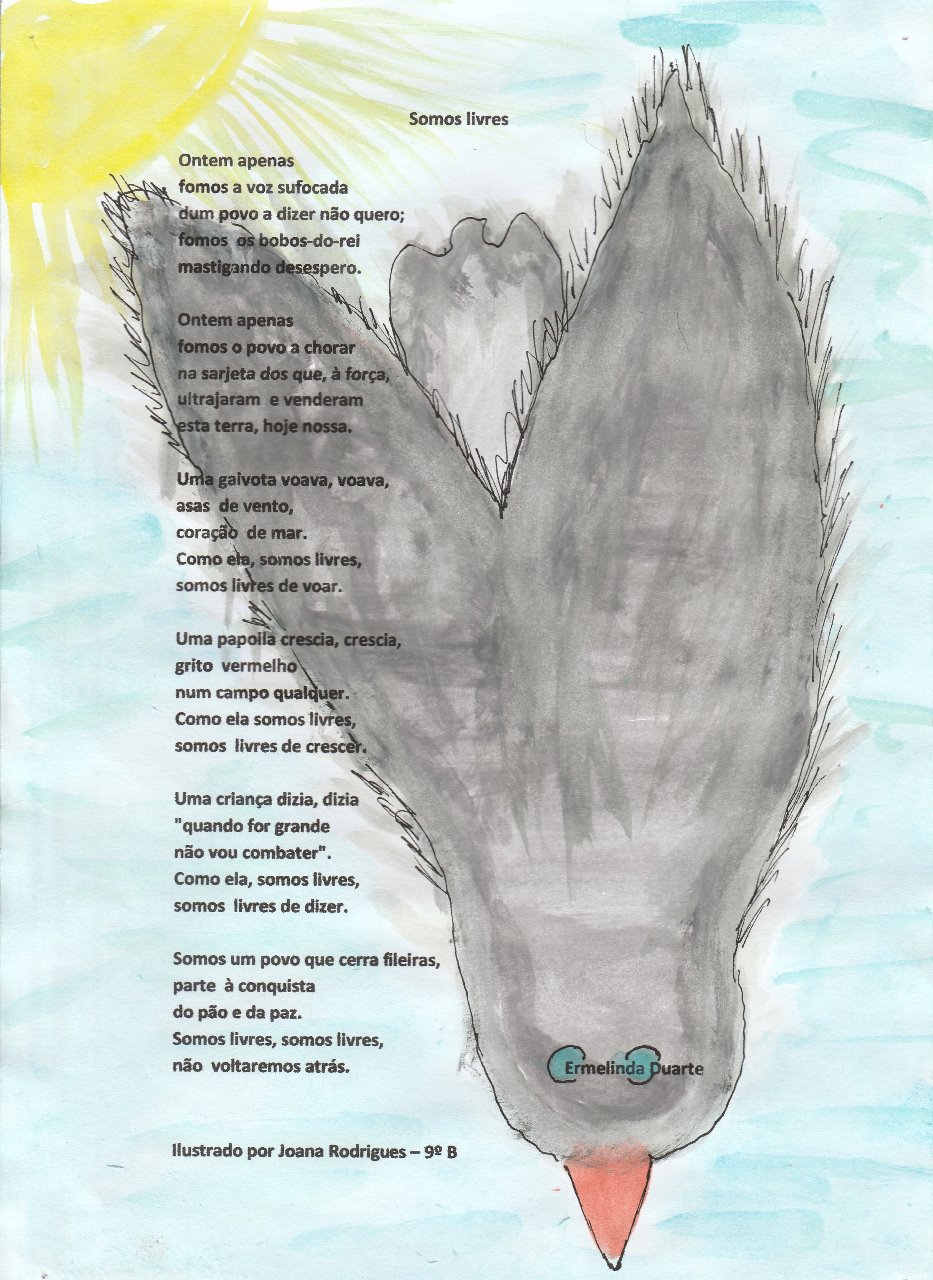 Somos livres
Ontem apenas
fomos a voz sufocada
dum povo a dizer não quero;
fomos os bobos-do-rei
mastigando desespero.
Ontem apenas
fomos o povo a chorar
na sarjeta dos que, à força,
ultrajaram e venderam
esta terra, hoje nossa.
Uma gaivota voava, voava,
asas de vento,
coração de mar.
Como ela, somos livres,
somos livres de voar.
Uma papoila crescia, crescia,
grito vermelho
num campo qualquer.
Como ela somos livres,
somos livres de crescer.
Uma criança dizia, dizia
"quando for grande
não vou combater".
Como ela, somos livres,
somos livres de dizer.
Somos um povo que cerra fileiras,
parte à conquista
do pão e da paz.
Somos livres, somos livres,
não voltaremos atrás.
Ermelinda Duarte
Ilustrado por Joana Rodrigues – 9º B